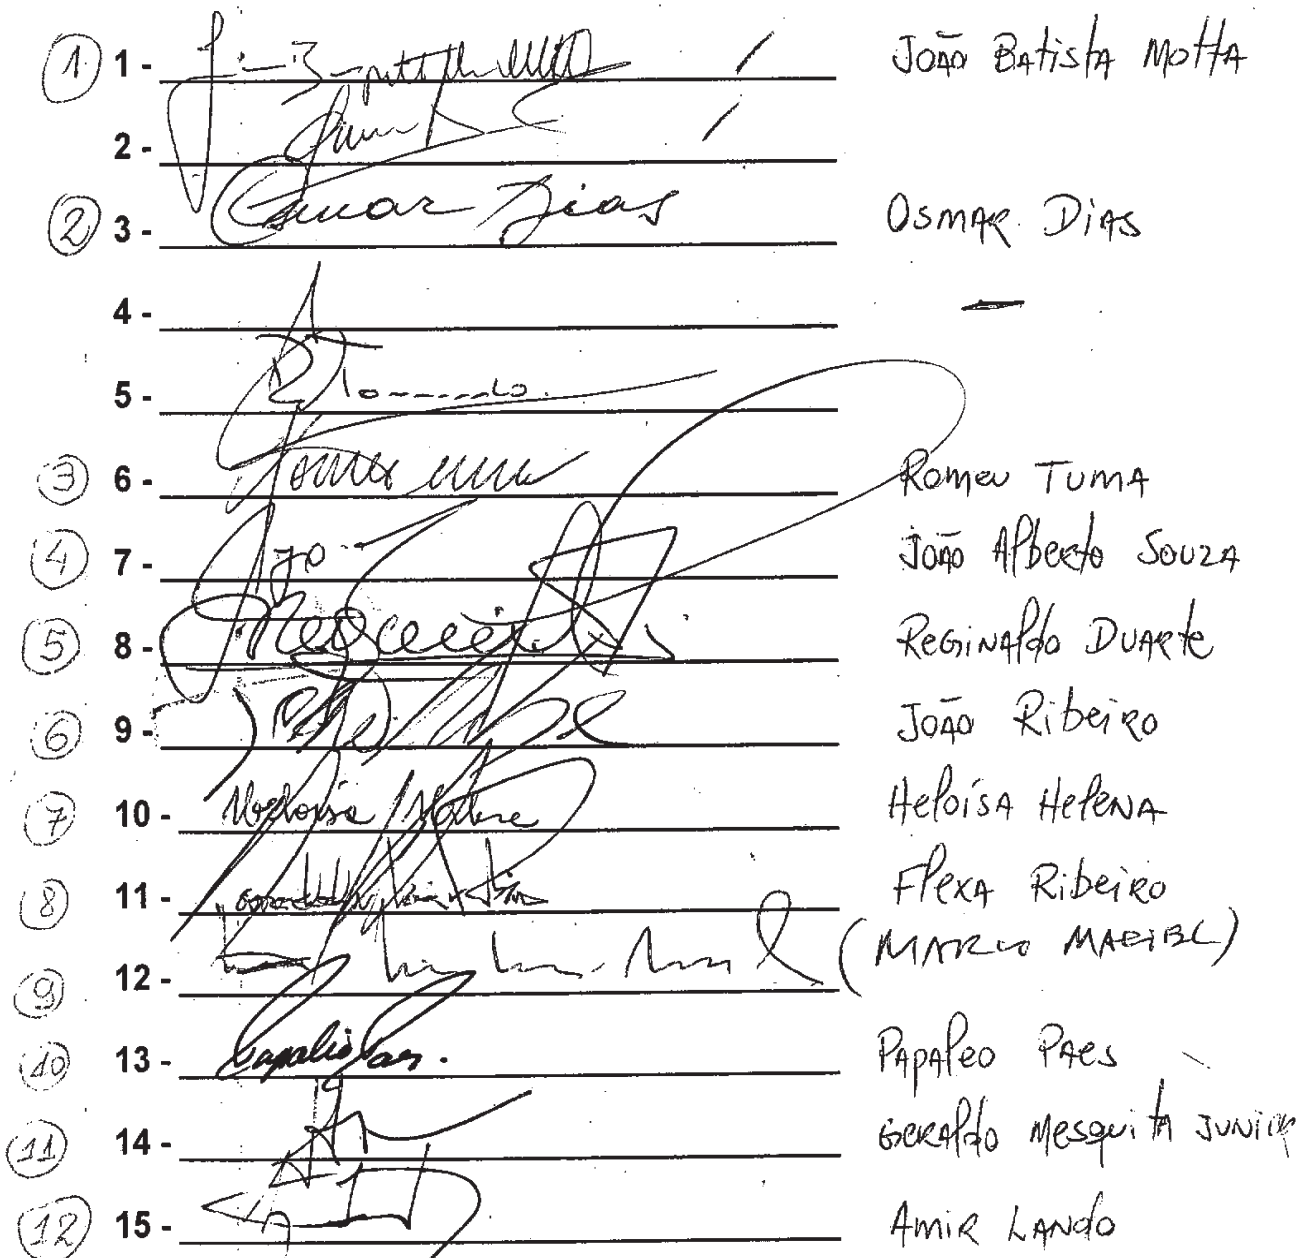 1 1 - João Batista Motta
2 -
2 3 - Osmar Dias Osmar Dias
4 - —
5 -
3 6 - Romeu Tuma
4 7 - João Alberto Souza
5 8 - Reginaldo Duarte
6 9 - João Ribeiro
7 10 - Heloísa Helena Heloísa Helena
8 11 - Flexa Ribeiro
9 12 - (MARCO MACIEL)
10 13 - Papaléo Paes. Papaleo Paes
11 14 - Geraldo Mesquita Junior
12 15 - Amir Lando